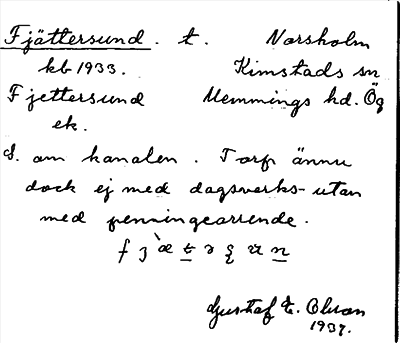 Fjättersund. t. Norsholm
kb 1933. Kimstads sn
Fjettersund Memmings hd. Ög
ek.
S. om kanalen. Torp ännu
dock ej med dagsverks- utan
med penningearrende.
Gustaf E. Olson
1937.